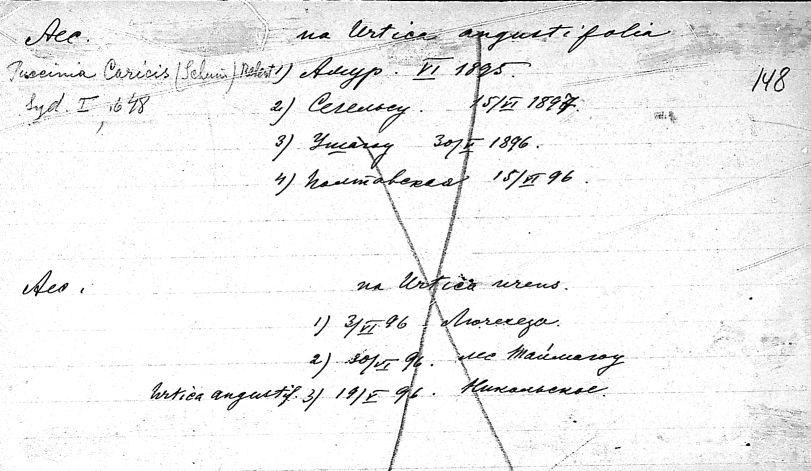 Aec. на Urtica angustifolia
Puccinia Caricis (Schum) Rebent 1) Амур. VI 1895.
148
Syd. I, 648 2) Сегельсу. 15/VI 1897.
3) Ушагоу 30/V 1896.
4) Полтавская 15/VI 96.
Aec. на Urtica urens.
1) 3/VI 96. Лючехеза.
2) 30/VI 96. лес Таймагоу
Urtica angustif. 3) 19/V 96. Никольское.